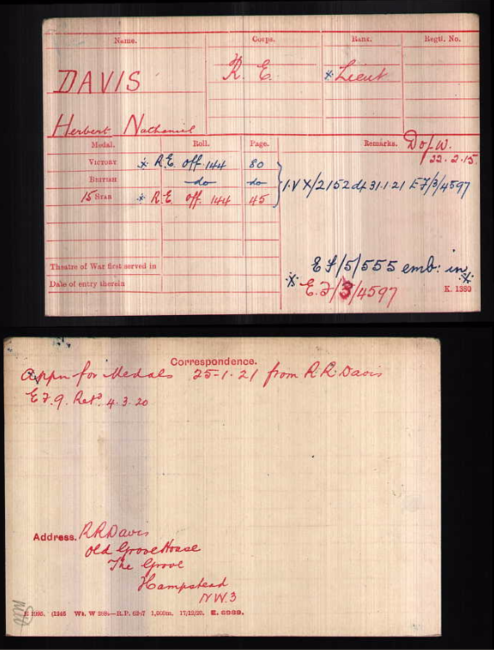 Name. Corps. Rank. Regtl. No.
DAVIS R. E. * Lieut
Herbert Nathaniel
Medal. Roll. Page. Remarks. D of W.
22.2.15.
VICTORY * R.E. off. 144 80
BRITISH do do 1.V X/2152 dt 31.1.21 EF/3/4597
15 STAR * R.E. off. 144 45
Theatre of War first served in EF/5/555 emb: in
Date of entry therein * E.F/3/4597 K. 1380
Correspondence.
Appn for Medals 25-1-21 from R.R. Davis
E.F.9. Retd 4.3.20
Address. R R Davis
Old Grove House
The Grove
Hampstead
N.W.3